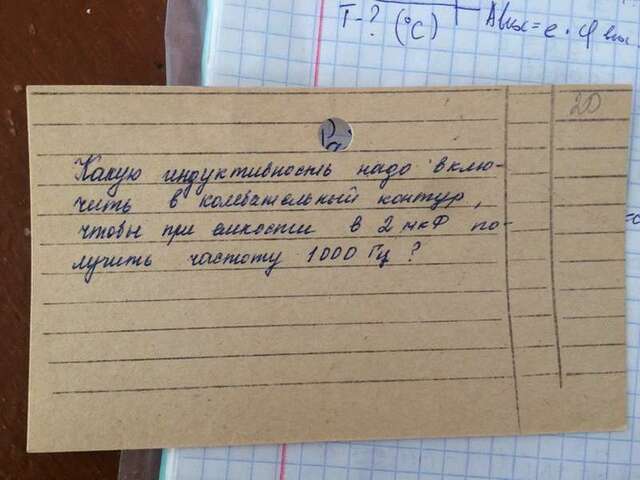 T-? (°C)
Aвых = e · φ вых
20
Какую индуктивность надо вклю-
чить в колебательный контур,
чтобы при емкости в 2 мкФ по-
лучить частоту 1000 Гц ?